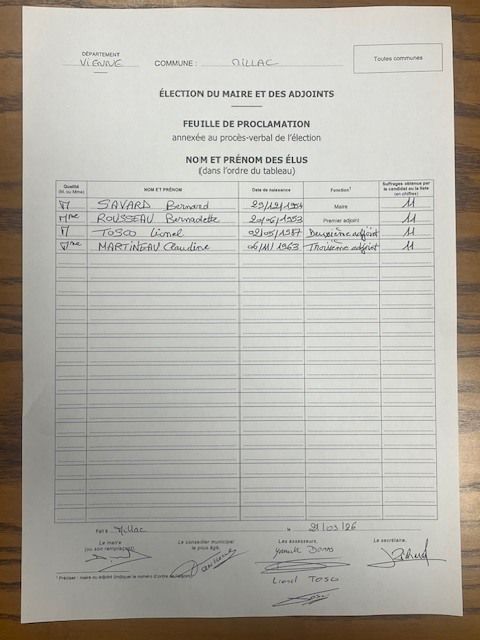 DÉPARTEMENT
VIENNE COMMUNE : MILLAC
Toutes communes
ÉLECTION DU MAIRE ET DES ADJOINTS
FEUILLE DE PROCLAMATION
annexée au procès-verbal de l'élection
NOM ET PRÉNOM DES ÉLUS
(dans l'ordre du tableau)
Qualité (M. ou Mme) NOM ET PRÉNOM Date de naissance Fonction¹ Suffrages obtenus par le candidat ou la liste (en chiffres)
M SAVARD Bernard Maire 11
Mme ROUSSEAU Bernadette 20/06/1953 Premier adjoint 11
M TOSCO Lionel 02/05/1987 Deuxième adjoint 11
Mme MARTINEAU Claudine 06/11/1963 Troisième adjoint 11
Fait à Millac le /03/26
Le maire (ou son remplaçant) Le conseiller municipal le plus âgé, Les assesseurs, Le secrétaire,
Lionel TOSCO
¹ Préciser : maire ou adjoint (indiquer le numéro d'ordre de l'adjoint).